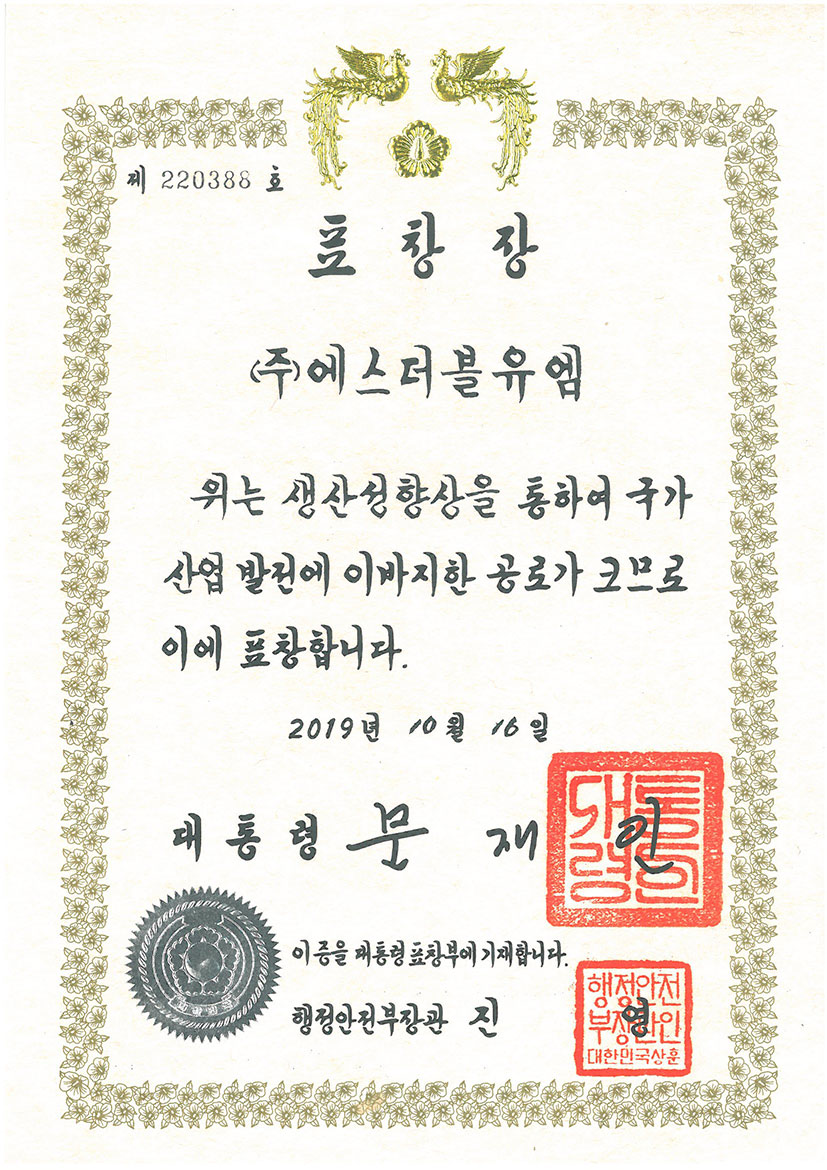 제 220388 호
표창장
(주)에스더블유엠
위는 생산성향상을 통하여 국가
산업 발전에 이바지한 공로가 크므로
이에 표창합니다.
2019년 10월 16일
대통령 문재인
대통령의인
이 증을 대통령표창부에 기재합니다.
행정안전부장관 진영
행정안전
부장관인
대한민국상훈